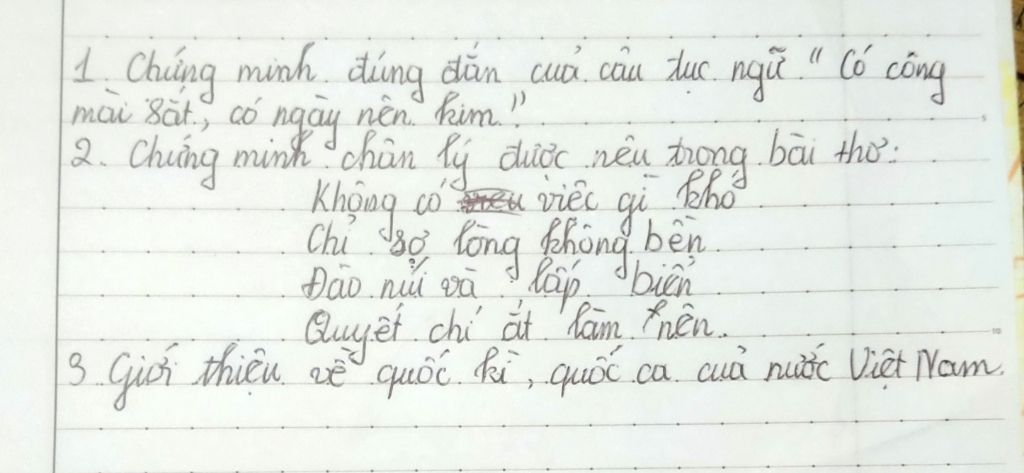 1. Chứng minh đúng đắn của câu tục ngữ "Có công
mài sắt, có ngày nên kim."
2. Chứng minh chân lý được nêu trong bài thơ:
Không có việc gì khó
Chỉ sợ lòng không bền
Đào núi và lấp biển
Quyết chí ắt làm nên.
3 Giới thiệu về quốc kì, quốc ca của nước Việt Nam.